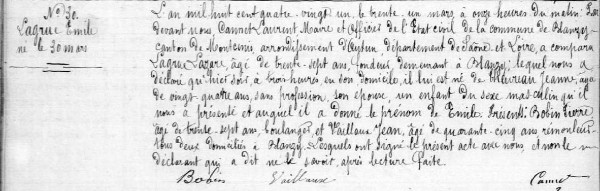 N° 30.
Lagrue Emile
né le 30 mars
L'an mil huit cent quatre-vingt un, le trente-un mars, à onze heures du matin. Par
devant nous Canret Laurent Maire et Officier de l'Etat civil de la commune de Blanzy
canton de Montcenis, arrondissement d'Autun, département de Saône et Loire, a comparu
Lagrue Lazare, âgé de trente-sept ans, fondeur, demeurant à Blanzy; lequel nous a
déclaré qu'hier soir, à trois heures, en son domicile, il lui est né de Jeanne, âgée
de vingt-quatre ans, sans profession, son épouse un enfant du sexe masculin qu'il
nous a présenté et auquel il a donné le prénom de Emile. Présents: Bobin Pierre
âgé de trente-sept ans, boulanger, et Vaillaux Jean, âgé de quarante-cinq ans rémouleur
tous deux domiciliés à Blanzy. Lesquels ont signé le présent acte avec nous, et non le
déclarant qui a dit ne le savoir, après lecture faite.
Bobin Vaillaux Canret